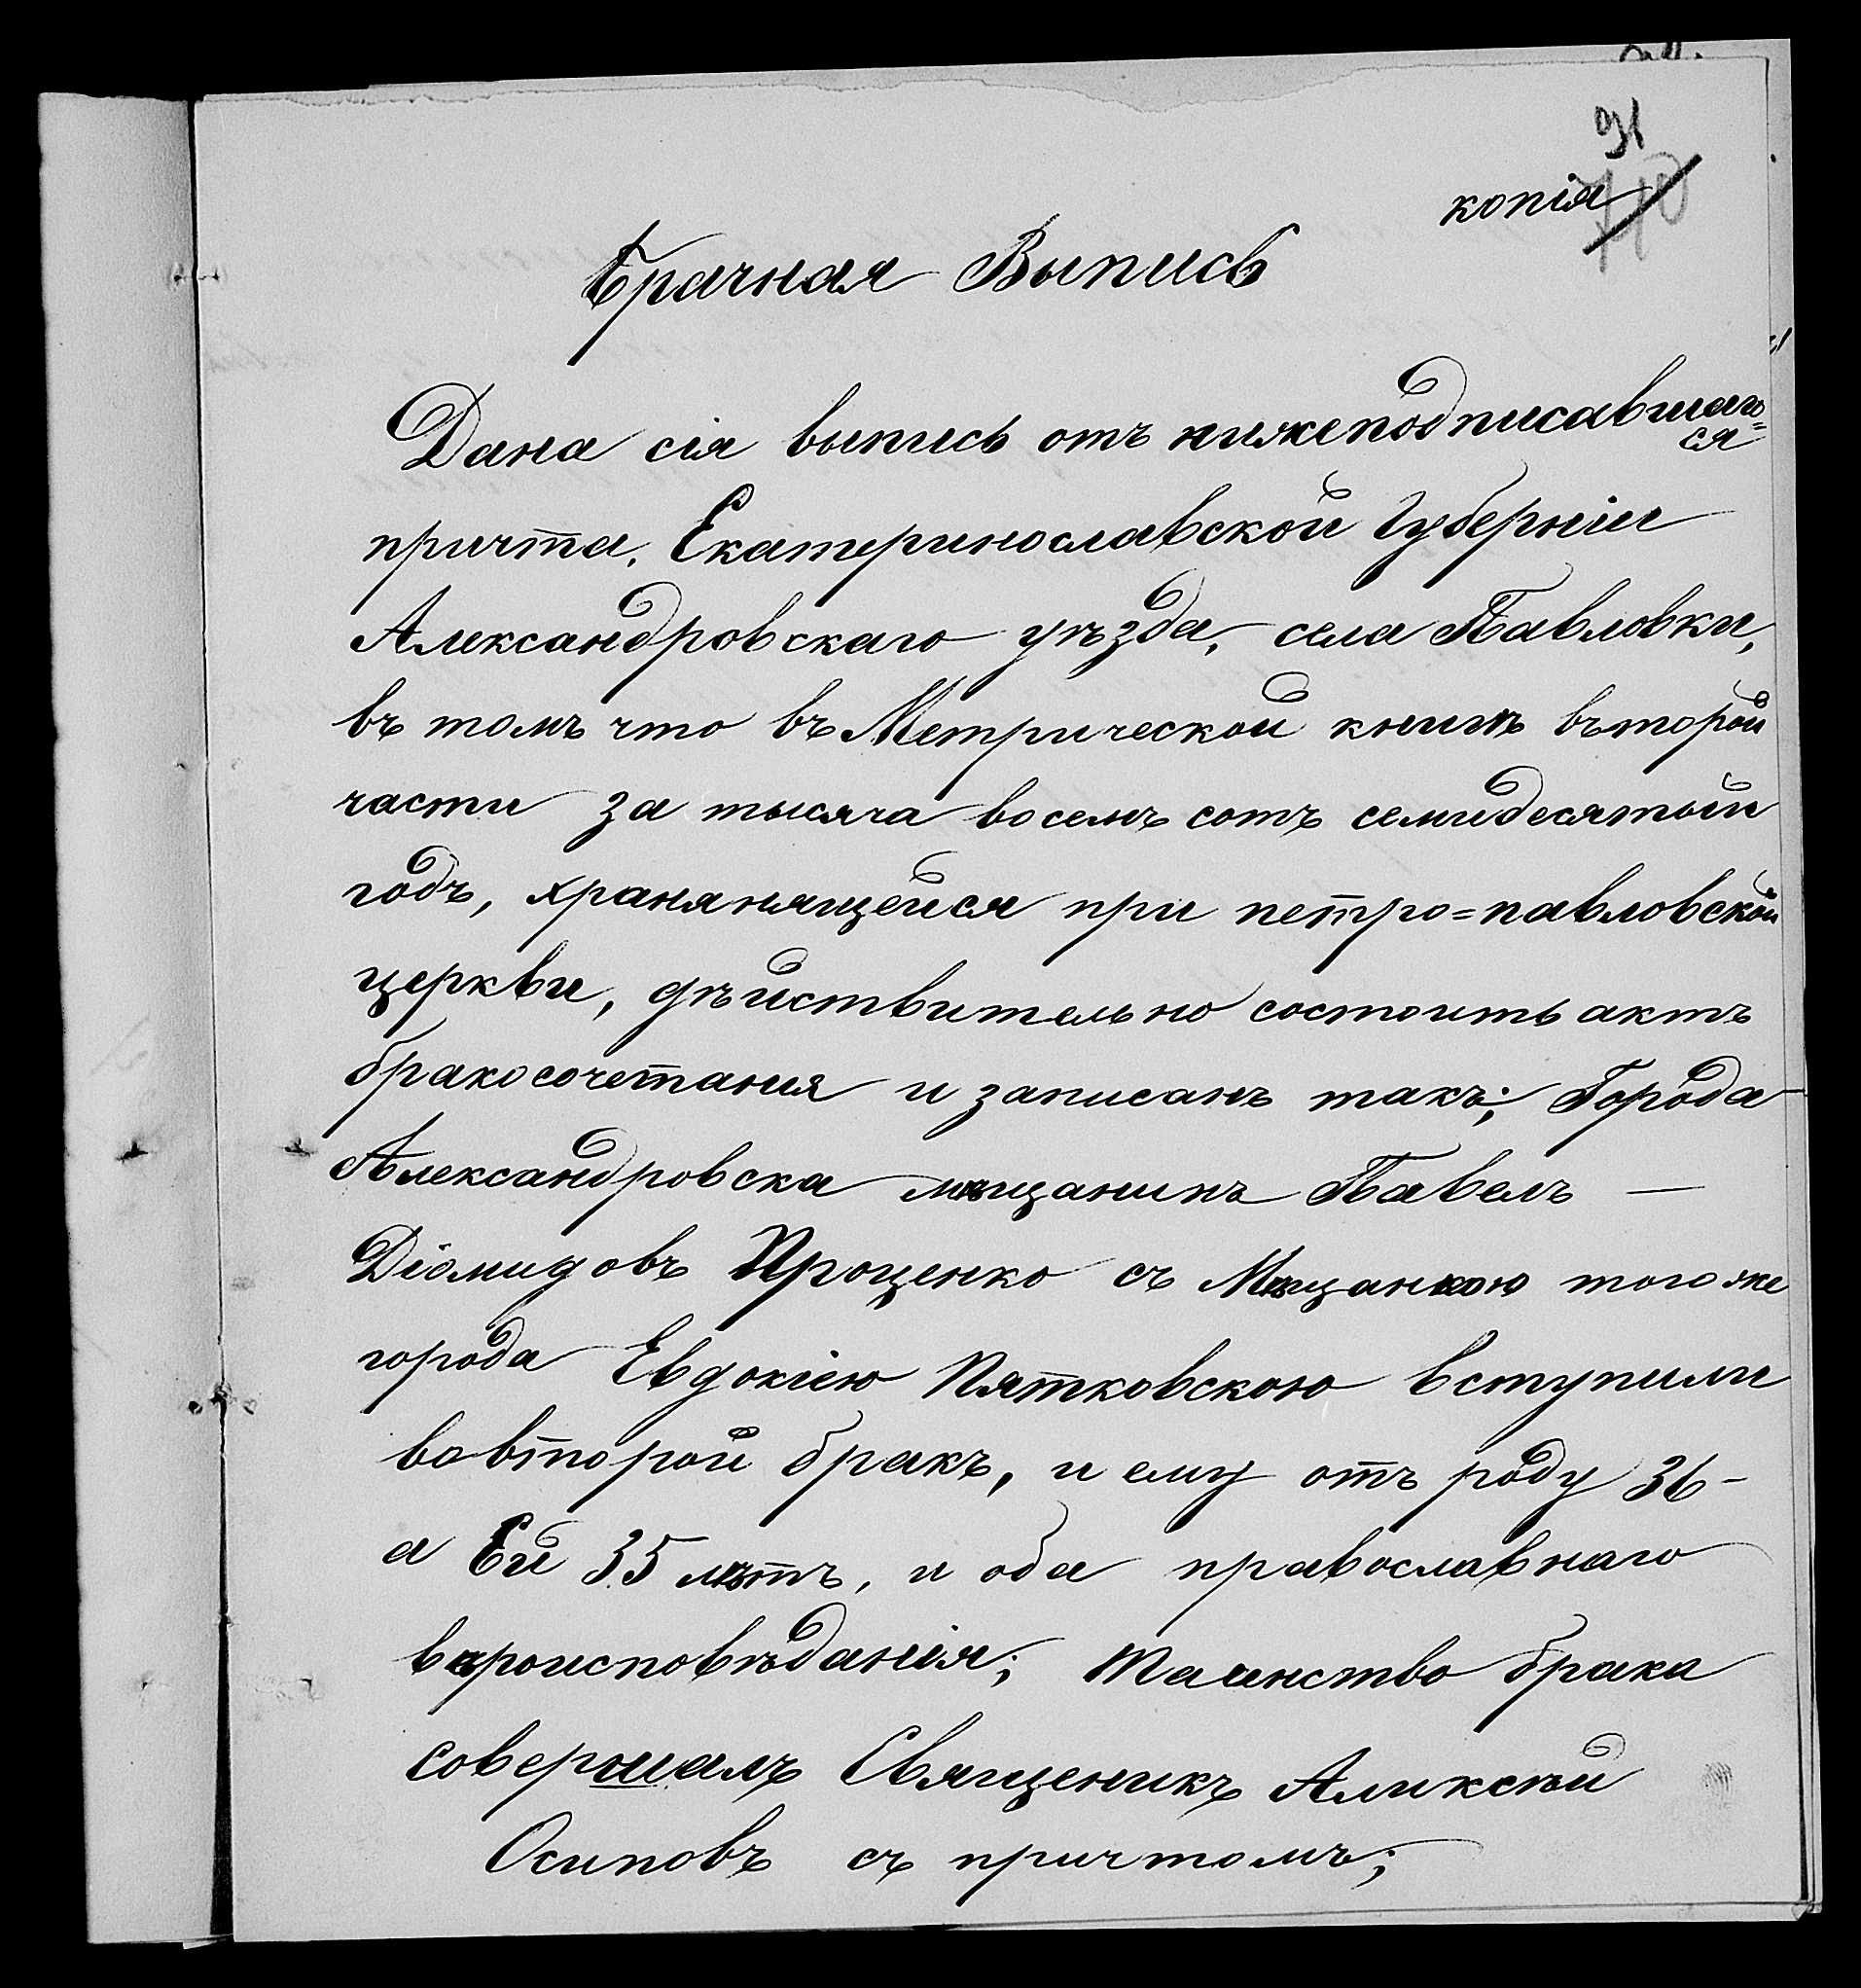 91
копія
Брачная Выпись
Дана сія выпись отъ нижеподписавшаго=
ся
причта, Екатеринославской Губерніи
Александровскаго уѣзда, села Павловки,
въ томъ что въ Метрической книгѣ въторой
части за тысяча восемъ сотъ семидесятый
годъ, хранянящейся при петро=павловской
церкви, дѣйствительно состоитъ актъ
бракосочетания и записанъ такъ; Города
Александровска мѣщанинъ Павелъ —
Діомидовъ Проценко съ Мѣщанкою того же
города Евдокіею Пятковскою вступили
вовторой бракъ, и ему отъ роду 36 –
а Ей 35 лѣтъ, и оба православнаго
вѣроисповѣданія; Таинство брака
совершалъ Священикъ Аликсѣй
Осиповъ съ причтомъ;